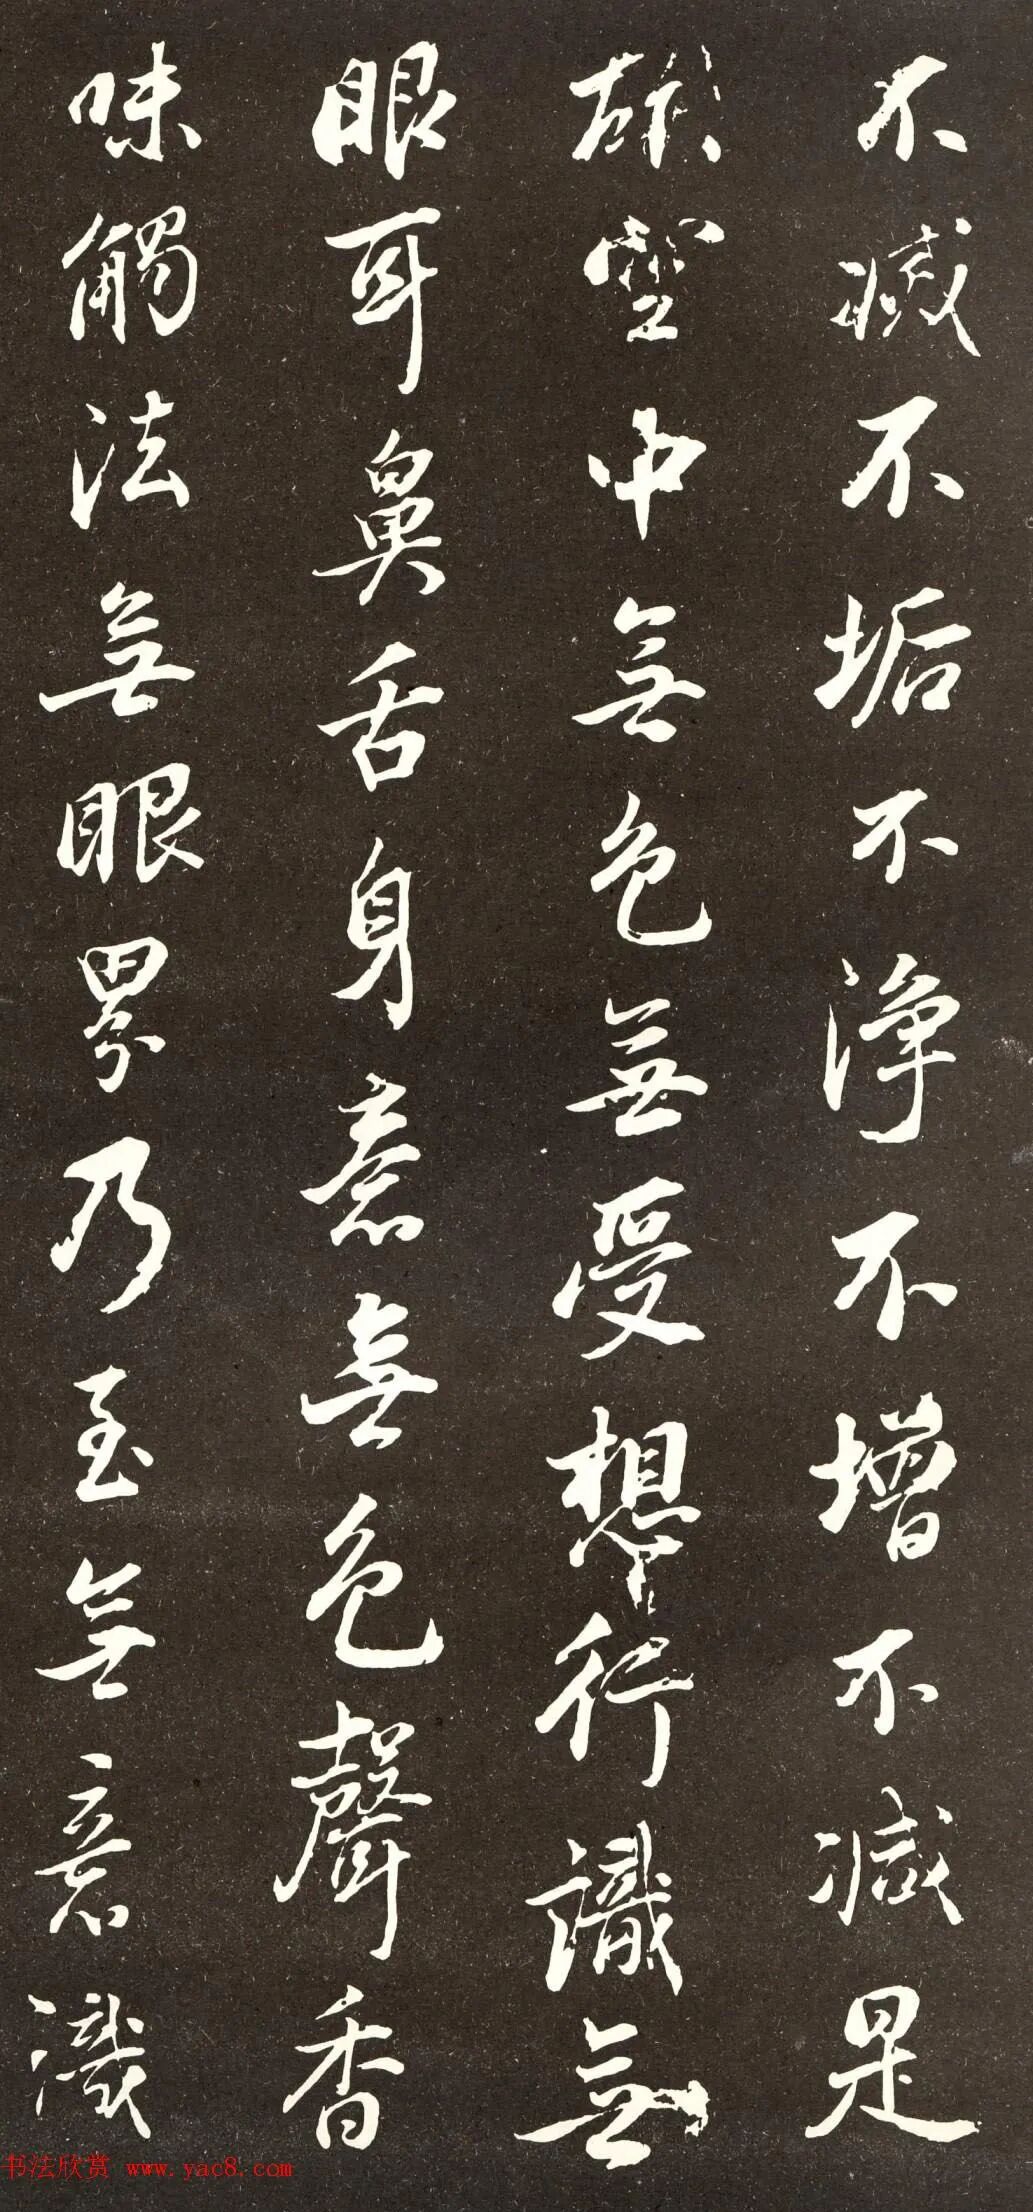 不滅不垢不淨不增不減是
故空中無色無受想行識無
眼耳鼻舌身意無色聲香
味觸法無眼界乃至無意識
书法欣赏 www.yac8.com